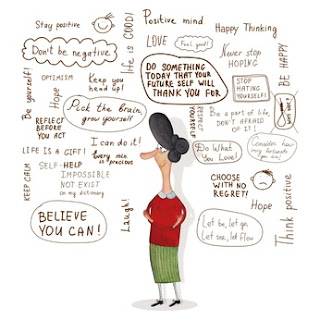 Stay positive
Don't be negative.
OPTIMISM
Keep you
head up!
life is GOOD!
Positive mind
LOVE
Feel good!
Happy Thinking
Never stop
HOPING
BE HAPPY
DO SOMETHING
TODAY THAT YOUR
FUTURE SELF WILL
THANK YOU FOR
STOP
HATING
YOURSELF!
Be yourself!
Hope
Pick the brain,
grow yourself
REFLECT
BEFORE
YOU ACT
RESPECT
YOURSELF
Be a part of life,
DON'T AFRAID
OF IT!
I can do it!
Every min is
precious
LIFE IS A GIFT!
SELF-HELP
IMPOSSIBLE
NOT EXIST
in my dictionary
KEEP CALM
Do What
You Love!
Consider how
you are!
CHOOSE
WITH NO
REGRET!
BELIEVE
YOU CAN!
Laugh!
Hope
Let be, let go,
Let see, let flow
Think positive